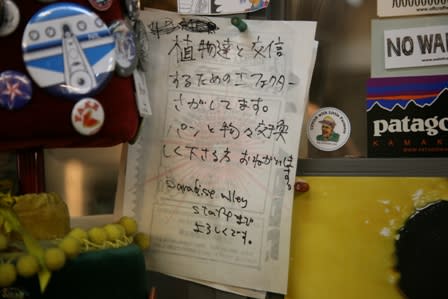 植物達と交信
するためのエフェクター
さがしてます。
パンと物々交換
して下さる方 おねがいします
Paradise alley
staffまで
よろしくです。
NO WAR
patago
KAMAK